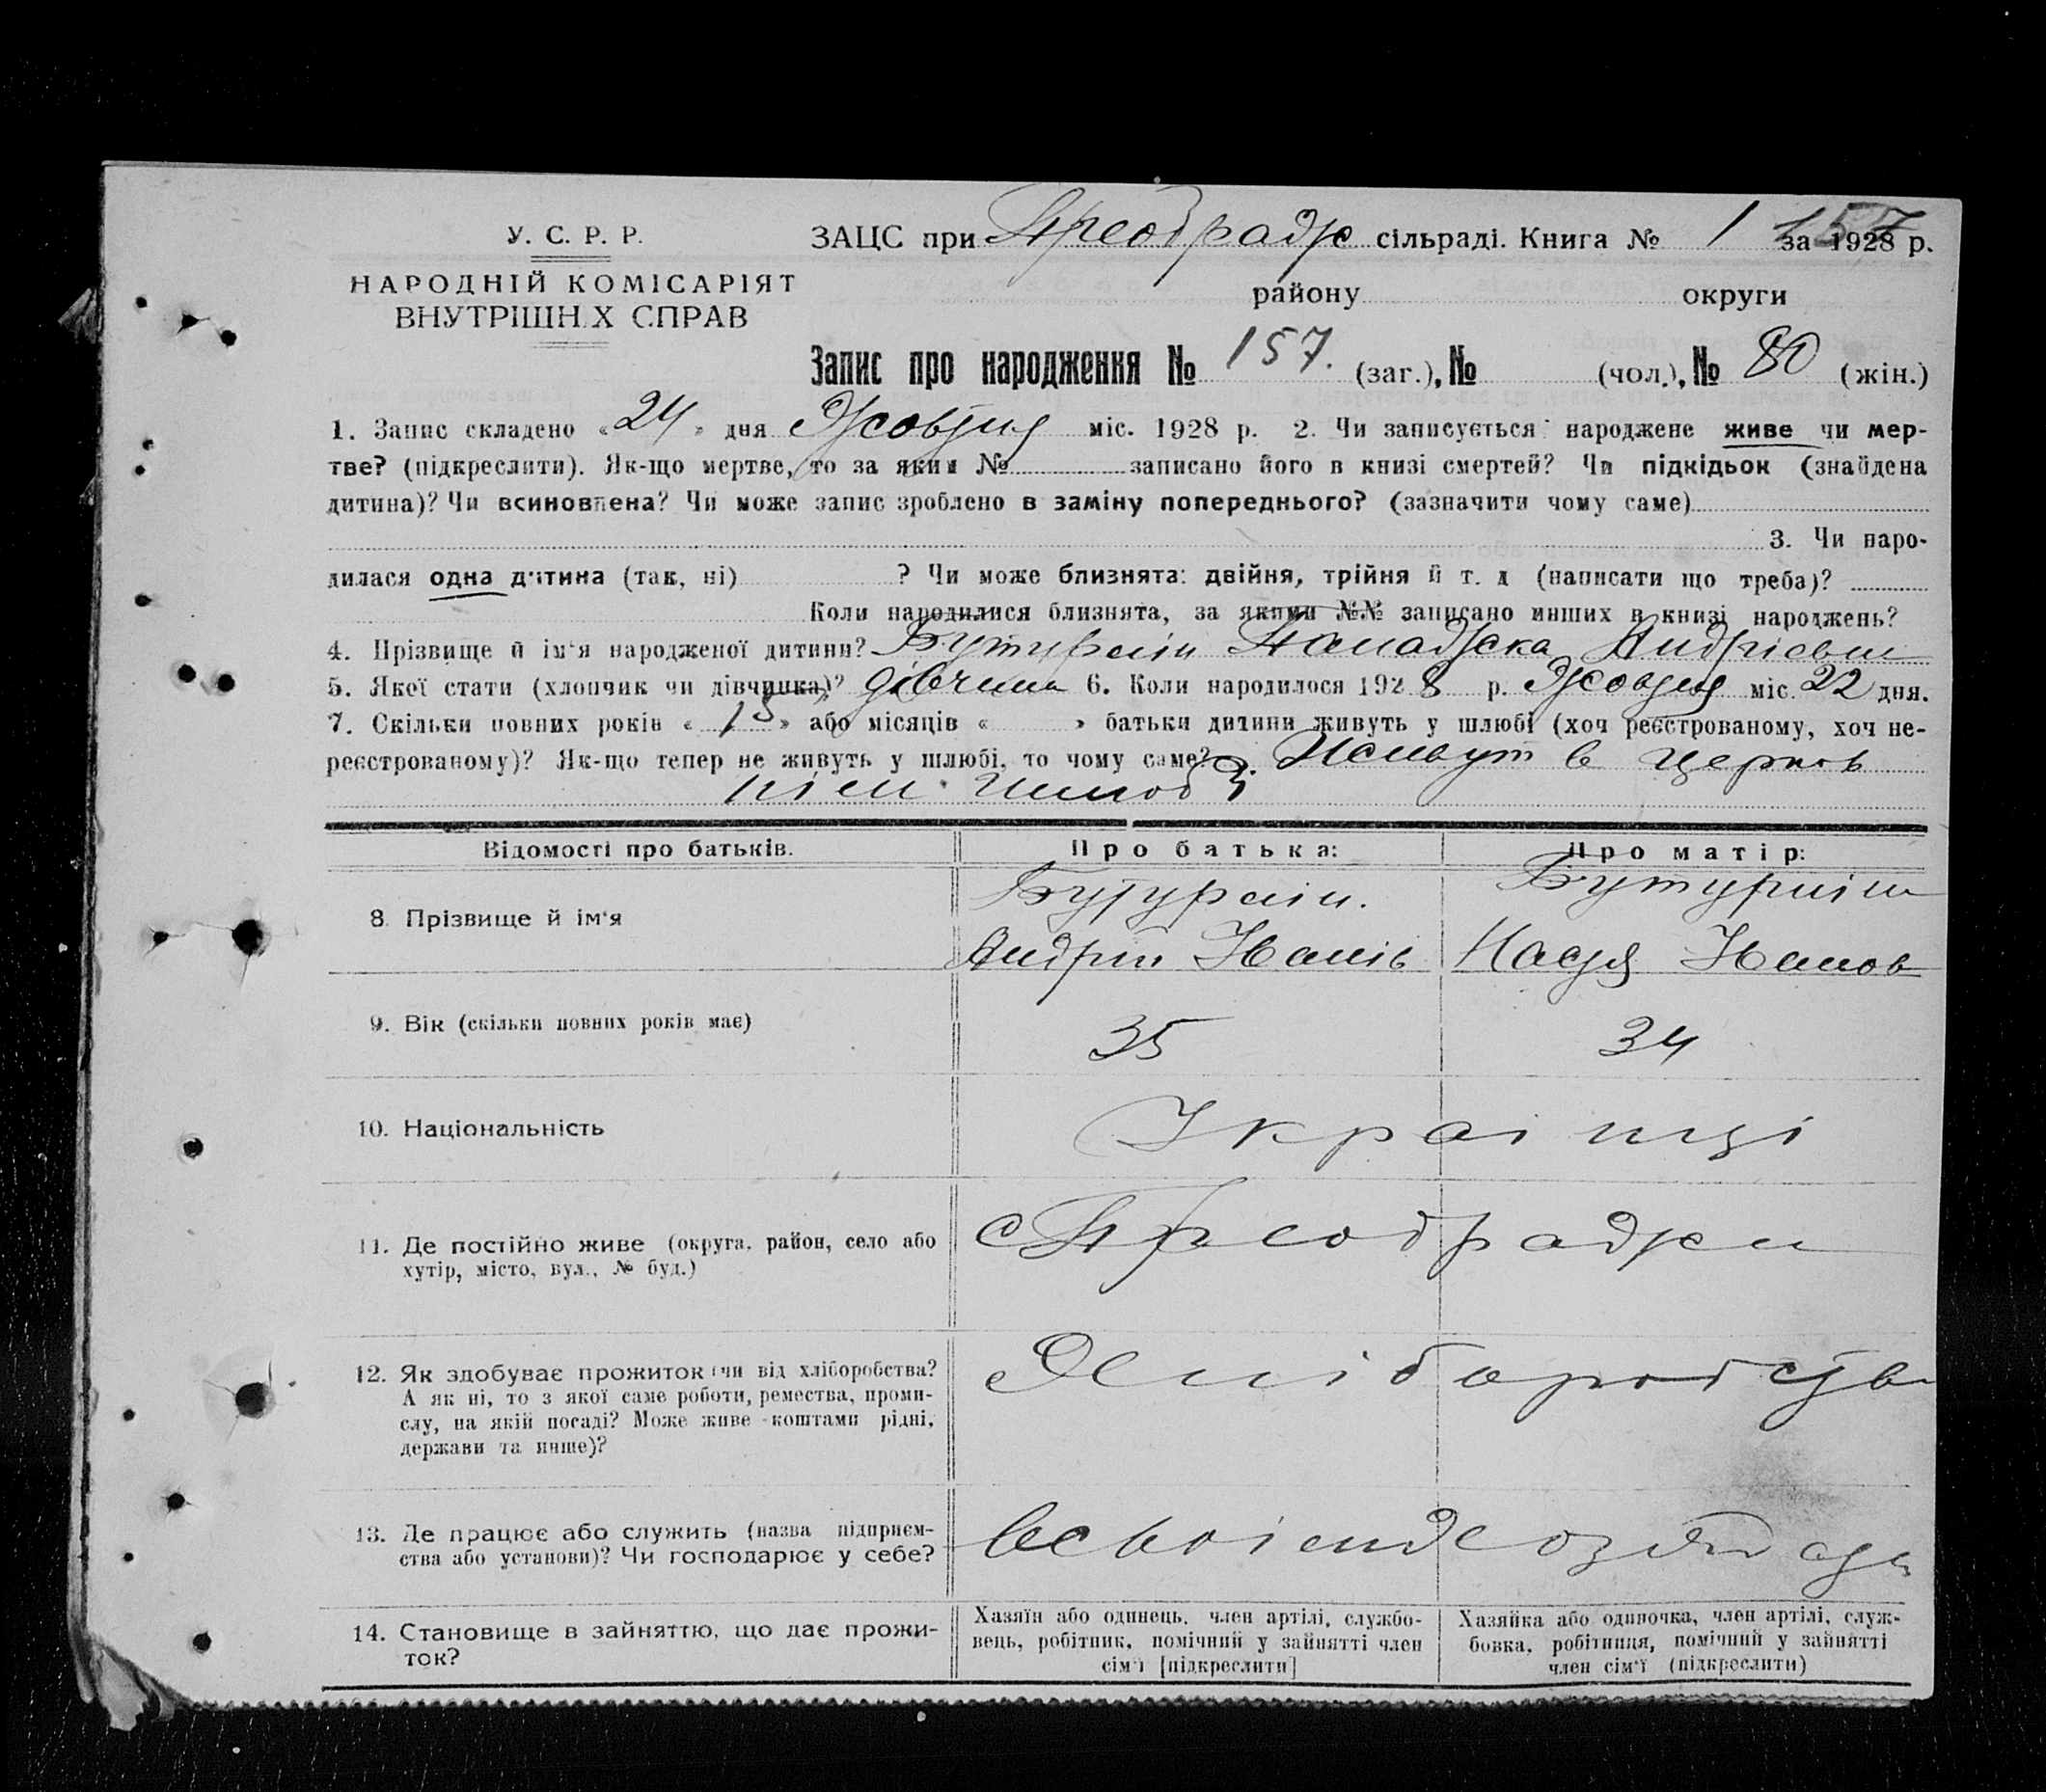 У. С. Р. Р.
НАРОДНІЙ КОМІСАРІЯТ
ВНУТРІШНІХ СПРАВ
ЗАЦС при Преображ сільраді. Книга № 1 за 1928 р.
157
району округи
Запис про народження № 157. (заг.), № (чол.), № 80 (жін.)
1. Запис складено «24» дня Жовтня міс. 1928 р. 2. Чи записується народжене живе чи мер-
тве? (підкреслити). Як-що мертве, то за яким № записано його в книзі смертей? Чи підкідьок (знайдена
дитина)? Чи всиновлена? Чи може запис зроблено в заміну попереднього? (зазначити чому саме)
3. Чи наро-
дилася одна дитина (так, ні) ? Чи може близнята: двійня, трійня й т. д (написати що треба)?
Коли народилися близнята, за якими №№ записано инших в книзі народжень?
4. Прізвище й ім'я народженої дитини? Андрієвна
5. Якої стати (хлопчик чи дівчинка)? дівчина 6. Коли народилося 1928 р. Жовтня міс. 22 дня.
7. Скільки повних років «15» або місяців « » батьки дитини живуть у шлюбі (хоч реєстрованому, хоч не-
реєстрованому)? Як-що тепер не живуть у шлюбі, то чому саме? Живут в церков
нім шлюбі
Відомості про батьків. Про батька: Про матір:
8. Прізвище й ім'я
Андрій Іванів Настя Іванов
9. Вік (скільки повних років має) 35 34
10. Національність Українці
11. Де постійно живе (округа, район, село або
хутір, місто, вул., № буд.)
с Преображен
12. Як здобуває прожиток (чи від хліборобства?
А як ні, то з якої саме роботи, ремества, проми-
слу, на якій посаді? Може живе коштами рідні,
держави та инше)?
Хліборобств
13. Де працює або служить (назва підприєм-
ства або установи)? Чи господарює у себе?
в своїем
14. Становище в зайняттю, що дає прожи-
ток?
Хазяїн або одинець, член артілі, службо-
вець, робітник, помічний у зайнятті член
сім'ї [підкреслити]
Хазяйка або одиночка, член артілі, служ-
бовка, робітниця, помічний у зайнятті
член сім'ї (підкреслити)